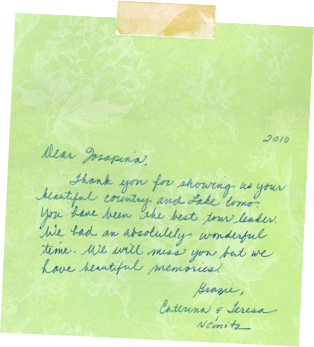 2010
Dear Josapina,
Thank you for showing us your
beautiful country and Lake Como.
You have been the best tour leader.
We had an absolutely wonderful
time. We will miss you but we
have beautiful memories!
Grazie,
Caterina & Teresa
Nemitz